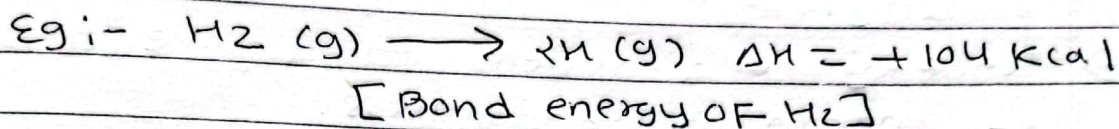 Eg :- H2 (g) ⟶ 2H (g) ΔH = + 104 Kcal
[Bond energy OF H2]